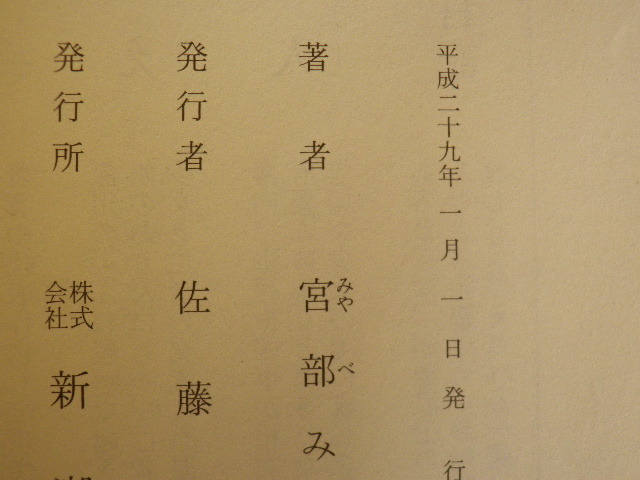 平成二十九年一月一日発行
著者 宮部み
みや べ
発行者 佐藤
発行所 株式会社 新